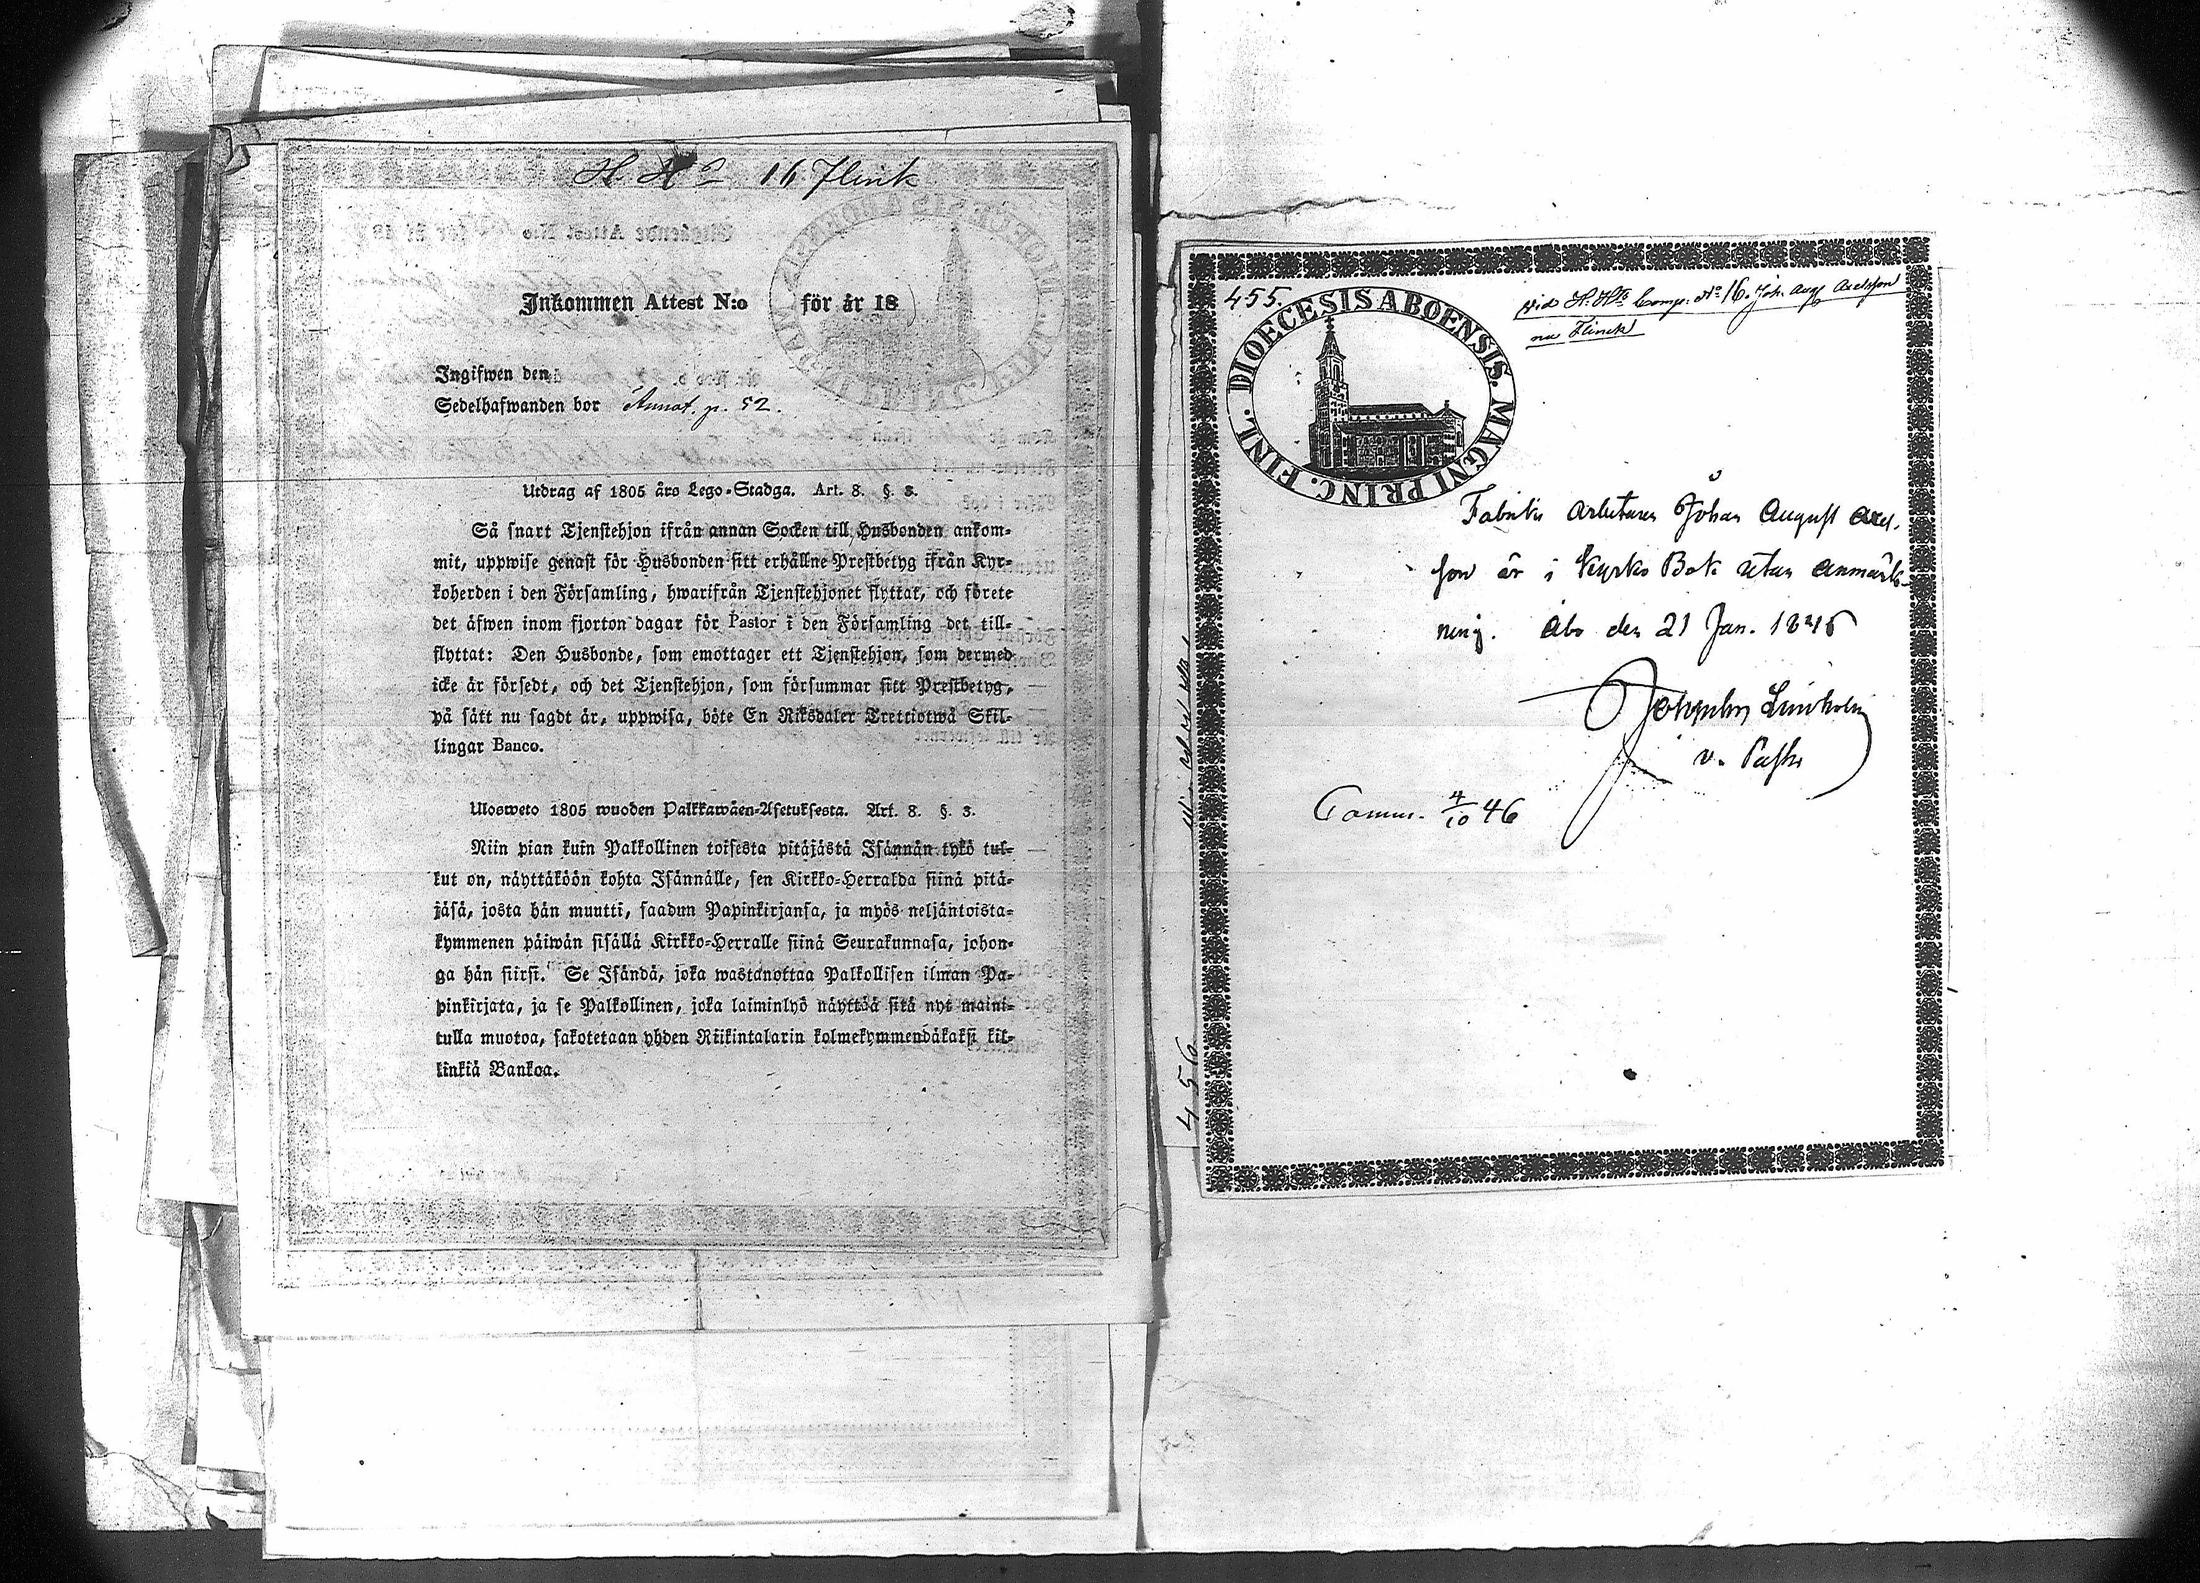 H. H:s 16. Flink
Inkommen Attest N:o för år 18
Ingifwen den
Sedelhafwanden bor Annot. p. 52.
Utdrag af 1805 års Lego-Stadga. Art. 8. §. 3.
Så snart Tjenstehjon ifrån annan Socken till Husbonden ankom-
mit, uppwise genast för Husbonden sitt erhållne Prestbetyg ifrån Kyr-
koherden i den Församling, hwarifrån Tjenstehjonet flyttat, och förete
det äfwen inom fjorton dagar för Pastor i den Församling det till-
flyttat: Den Husbonde, som emottager ett Tjenstehjon, som dermed
icke är försedt, och det Tjenstehjon, som försummar sitt Prestbetyg,
på sätt nu sagdt är, uppwisa, böte En Riksdaler Trettiotwå Skil-
lingar Banco.
Ulosweto 1805 wuoden Palkkawäen-Asetuksesta. Art. 8. §. 3.
Niin pian kuin Palkollinen toisesta pitäjästä Isännän tykö tul-
kut on, näyttäköön kohta Isännälle, sen Kirkko-Herralda siinä pitä-
jäsä, josta hän muutti, saadun Papinkirjansa, ja myös neljäntoista-
kymmenen päiwän sisällä Kirkko-Herralle siinä Seurakunnasa, johon-
ga hän siirsi. Se Isändä, joka wastanottaa Palkollisen ilman Pa-
pinkirjata, ja se Palkollinen, joka laiminlyö näyttää sitä nyt maini-
tulla muotoa, sakotetaan yhden Riikintalarin kolmekymmendäkaksi kil-
linkiä Bankoa.
455.
DIOECESIS ABOENSIS. MAGNI PRINC. FINL.
vid H. H:s Comp. No 16. Joh. Aug. Axelsson
nu Flinck
Fabriks arbetaren Johan August Axel-
son är i Kyrko Bok utan anmärk-
ning. Åbo den 21 Jan. 1846
v. Past.
Comm. 4/10 46
456